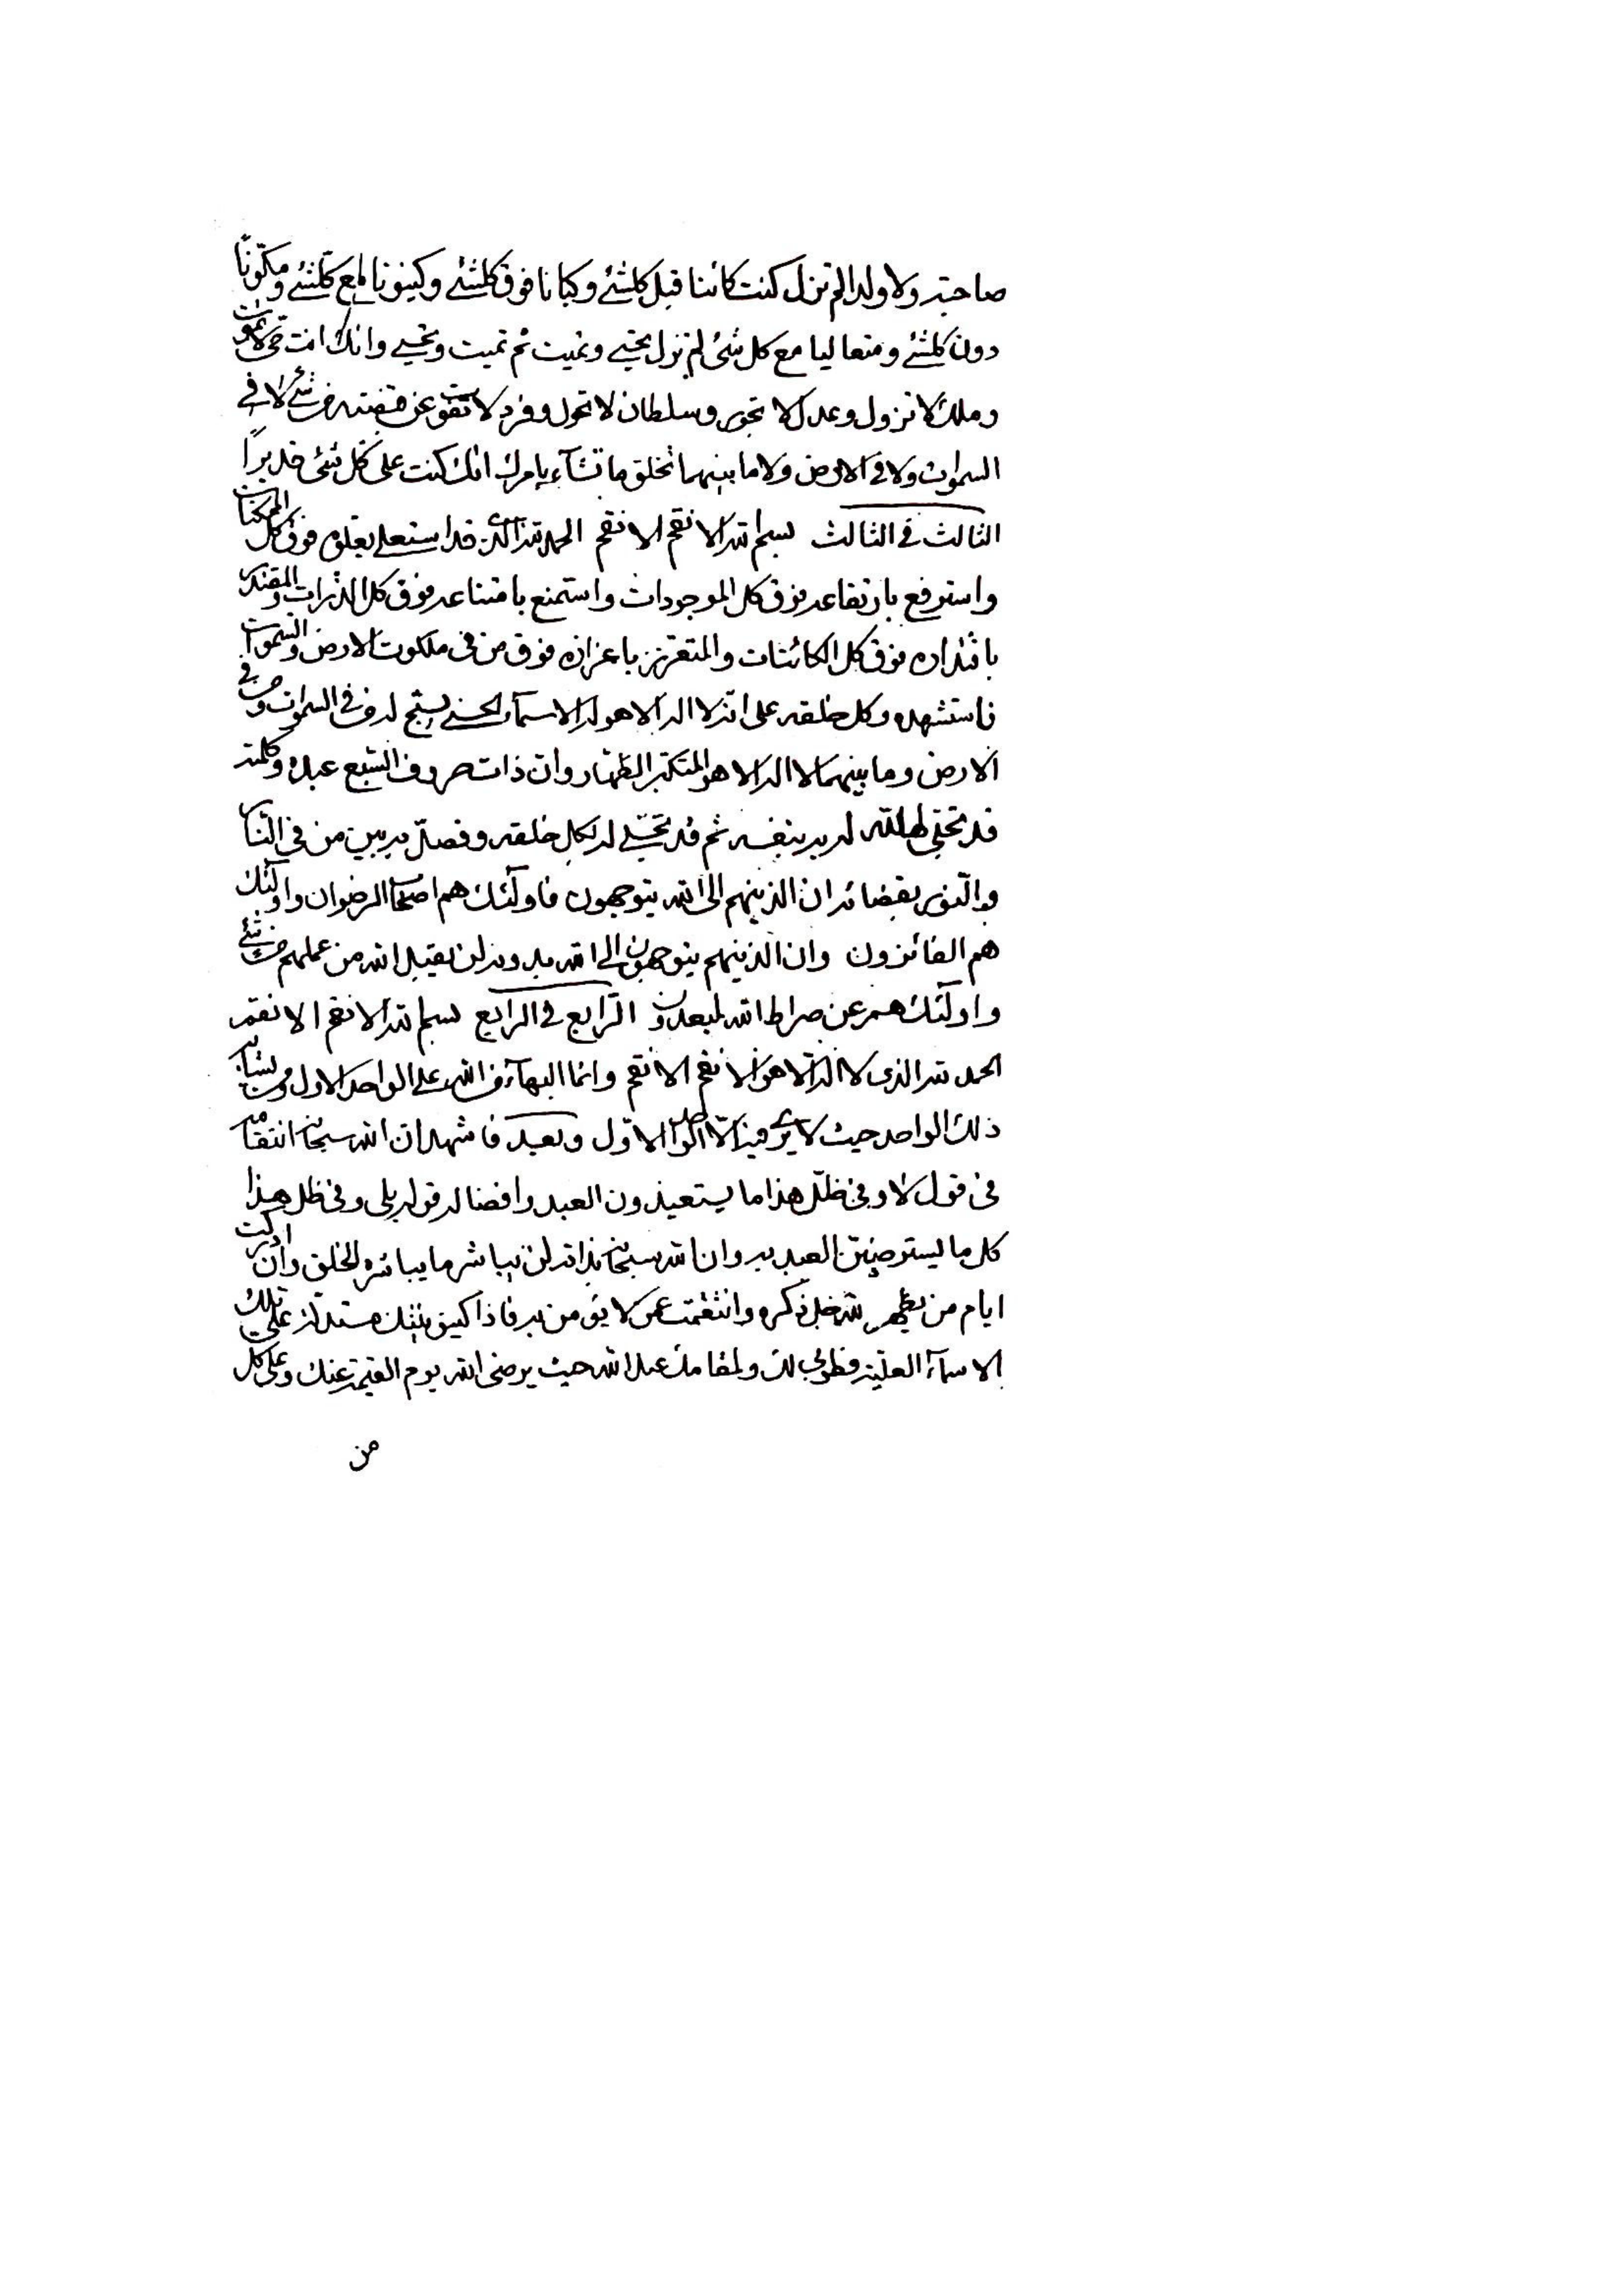 صاحبة ولا ولدا لم تزل كنت كائنا قبل كلشئ وكيانا فوق كلشئ وكينونا مع كلشئ ومكونا
دون كلشئ ومتعاليا مع كل شئ لم تزل تحيى وتميت ثم تميت وتحيى وانك انت حى لا تموت
وملك لا تزول وعدل لا تجور وسلطان لا تحول وفرد لا يفوت عن قبضته من شئ لا فى
السموات ولا فى الارض ولا ما بينهما تخلق ما تشآء بامرك انك كنت على كل شئ قديرًا
الثالث فى الثالث بسم الله الانقم الانقم الحمد لله الذى قد استعلى بعلوه فوق كل الممكنات
واسترفع بارتفاعه فوق كل الموجودات واستمنع بامتناعه فوق كل الذرات والمقتدر
باقتداره فوق كل الكائنات والمتعزز باعزازه فوق من فى ملكوت الارض والسموات
فاستشهده وكل خلقه على انه لا اله الا هو له الاسمآء الحسنى يسبح له من فى السموات ومن فى
الارض وما بينهما لا اله الا هو المتكبر القهار وان ذات حروف السبع عبده وكلمته
قد تجلى الله له به بنفسه ثم قد تجلى له لكل خلقه وفصل به بين من فى النار
والنور بقضائه ان الذينهم الى الله يتوجهون فاولئك هم اصحاب الرضوان واولئك
هم الفائزون وان الذينهم يتوجهون الى الله بدونه لن يقبل الله من عملهم من شئ
واولئك هم عن صراط الله لمبعدون الرابع فى الرابع بسم الله الانقم الانقم
الحمد لله الذى لا اله الا هو الانقم الانقم وانما البهآء من الله على الواحد الاول ومن يشابه
ذلك الواحد حيث لا يرى فيه الا الواحد الاول وبعد فاشهد ان الله سبحانه انتقامه
فى قول لا وفى ظل هذا ما يستعيذون العبد وافضاله قوله بلى وفى ظل هذا
كل ما يسترضين العبد به وان الله سبحانه بذاته لن يباشر ما يباشره الخلق وان ادركت
ايام من يظهره الله جل ذكره وانتقمت عمن لا يؤمن به فاذا كينونيتك مستدلة على تلك
الاسمآء العلية فطوبى لك ولمقامك عند الله حيث يرضى الله يوم القيمة عنك وعلى كل
من